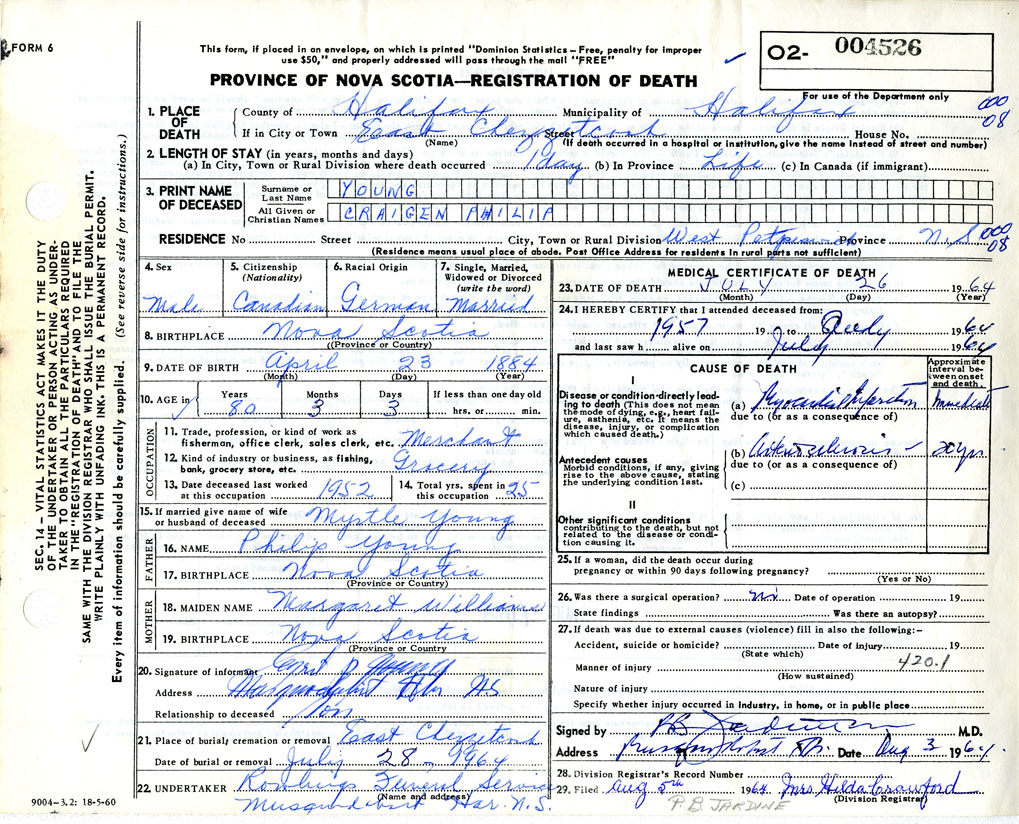 FORM 6
This form, if placed in an envelope, on which is printed "Dominion Statistics – Free, penalty for improper
use $50," and properly addressed will pass through the mail "FREE"
O2- 004526
For use of the Department only
PROVINCE OF NOVA SCOTIA—REGISTRATION OF DEATH
SEC. 14 – VITAL STATISTICS ACT MAKES IT THE DUTY
OF THE UNDERTAKER OR PERSON ACTING AS UNDER-
TAKER TO OBTAIN ALL THE PARTICULARS REQUIRED
IN THE "REGISTRATION OF DEATH" AND TO FILE THE
SAME WITH THE DIVISION REGISTRAR WHO SHALL ISSUE THE BURIAL PERMIT.
WRITE PLAINLY WITH UNFADING INK. THIS IS A PERMANENT RECORD.
Every item of information should be carefully supplied. (See reverse side for instructions.)
9004–3.2: 18-5-60
1. PLACE OF DEATH
County of Halifax Municipality of Halifax 000 08
If in City or Town East Chezzetcook Street House No.
(Name) (If death occurred in a hospital or institution, give the name instead of street and number)
2. LENGTH OF STAY (in years, months and days)
(a) In City, Town or Rural Division where death occurred 1 day (b) In Province Life (c) In Canada (if immigrant)
3. PRINT NAME OF DECEASED
Surname or Last Name YOUNG
All Given or Christian Names CRAIGEN PHILIP
RESIDENCE No Street City, Town or Rural Division West Petpeswick Province N.S 000 08
(Residence means usual place of abode. Post Office Address for residents in rural parts not sufficient)
4. Sex Male
5. Citizenship (Nationality) Canadian
6. Racial Origin German
7. Single, Married, Widowed or Divorced (write the word) Married
8. BIRTHPLACE Nova Scotia
(Province or Country)
9. DATE OF BIRTH April 23 1884
(Month) (Day) (Year)
10. AGE in Years 80 Months 3 Days 3 If less than one day old hrs. or min.
OCCUPATION
11. Trade, profession, or kind of work as
fisherman, office clerk, sales clerk, etc. Merchant
12. Kind of industry or business, as fishing,
bank, grocery store, etc. Grocery
13. Date deceased last worked at this occupation 1952
14. Total yrs. spent in this occupation 25
15. If married give name of wife or husband of deceased Myrtle Young
FATHER
16. NAME Philip Young
17. BIRTHPLACE Nova Scotia
(Province or Country)
MOTHER
18. MAIDEN NAME Margaret Williams
19. BIRTHPLACE Nova Scotia
(Province or Country
20. Signature of informant Young
Address Hbr NS
Relationship to deceased Son
21. Place of burial, cremation or removal East Chezzetcook
Date of burial or removal July 28 – 1964
22. UNDERTAKER Funeral Service
(Name and address)
Musquodoboit Har. N.S.
MEDICAL CERTIFICATE OF DEATH
23. DATE OF DEATH JULY 26 1964
(Month) (Day) (Year)
24. I HEREBY CERTIFY that I attended deceased from:
1957 19 to July 1964
and last saw h alive on July 1964
CAUSE OF DEATH
Approximate interval between onset and death.
I
Disease or condition directly lead-
ing to death (This does not mean
the mode of dying, e.g., heart fail-
ure, asthenia, etc. It means the
disease, injury, or complication
which caused death.)
(a) Myocardial Infarction Immediate
due to (or as a consequence of)
Antecedent causes
Morbid conditions, if any, giving
rise to the above cause, stating
the underlying condition last.
(b) Arteriosclerosis – 20 yrs.
due to (or as a consequence of)
(c)
II
Other significant conditions
contributing to the death, but not
related to the disease or condi-
tion causing it.
25. If a woman, did the death occur during
pregnancy or within 90 days following pregnancy?
(Yes or No)
26. Was there a surgical operation? No Date of operation 19
State findings Was there an autopsy?
27. If death was due to external causes (violence) fill in also the following:–
Accident, suicide or homicide? Date of injury 19
(State which)
420.1
Manner of injury
(How sustained)
Nature of injury
Specify whether injury occurred in industry, in home, or in public place
Signed by PB Jardine M.D.
Address Date Aug 3 1964
28. Division Registrar's Record Number
29. Filed Aug 5th 1964 Mrs Hilda Crawford
(Division Registrar)
P.B JARDINE